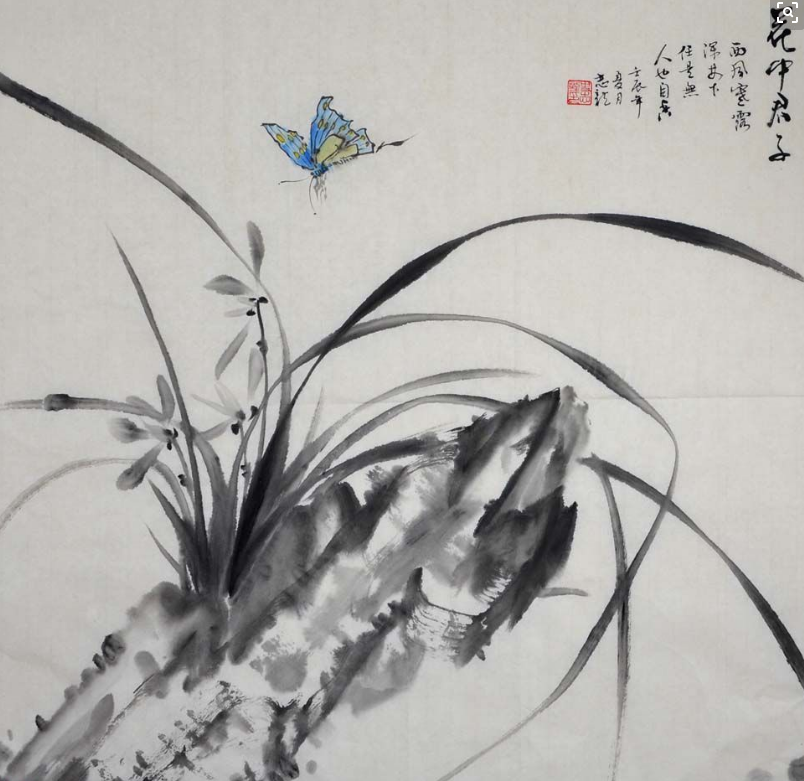 花中君子
西风寒露
深林下
任是無
人也自香
壬辰年
夏月